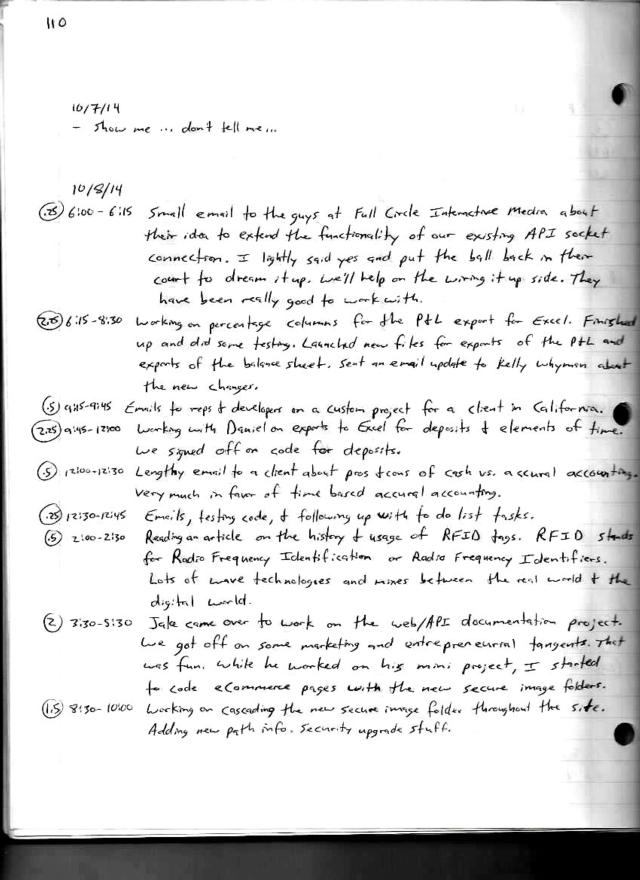 110
10/7/14
- Show me ... don't tell me...
10/8/14
(.25) 6:00 - 6:15 Small email to the guys at Full Circle Interactive Media about
their idea to extend the functionality of our existing API socket
connection. I lightly said yes and put the ball back in their
court to dream it up. We'll help on the wiring it up side. They
have been really good to work with.
(2.25) 6:15-8:30 Working on percentage columns for the P&L export for Excel. Finished
up and did some testing. Launched new files for exports of the P&L and
exports of the balance sheet. Sent an email update to Kelly Whyman about
the new changes.
(.5) 9:15-9:45 Emails to reps & developers on a custom project for a client in California.
(2.25) 9:45-12:00 Working with Daniel on exports to Excel for deposits & elements of time.
We signed off on code for deposits.
(.5) 12:00-12:30 Lengthy email to a client about pros & cons of cash vs. accural accounting.
Very much in favor of time based accural accounting.
(.25) 12:30-12:45 Emails, testing code, & following up with to do list tasks.
(.5) 2:00-2:30 Reading an article on the history & usage of RFID tags. RFID stands
for Radio Frequency Identification or Radio Frequency Identifiers.
Lots of wave technologies and mixes between the real world & the
digital world.
(2) 3:30-5:30 Jake came over to work on the web/API documentation project.
We got off on some marketing and entrepreneurial tangents. That
was fun. While he worked on his mini project, I started
to code eCommerce pages with the new secure image folders.
(1.5) 8:30-10:00 Working on cascading the new secure image folder throughout the site.
Adding new path info. Security upgrade stuff.